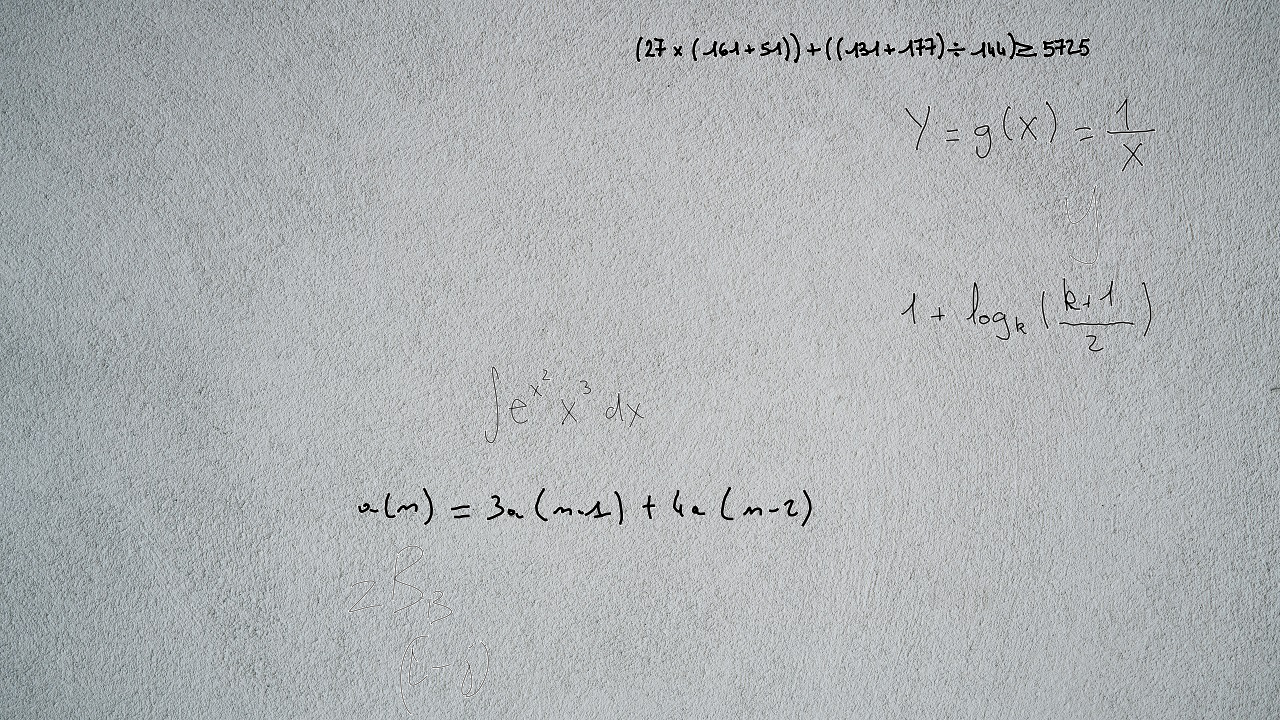 (27 × (161+51)) + ((131+177) ÷ 144) ≥ 5725
Y = g(x) = 1/x
y
1 + log_k ((k+1)/2)
∫ e^{x^2} x^3 dx
a(n) = 3a(n-1) + 4a(n-2)